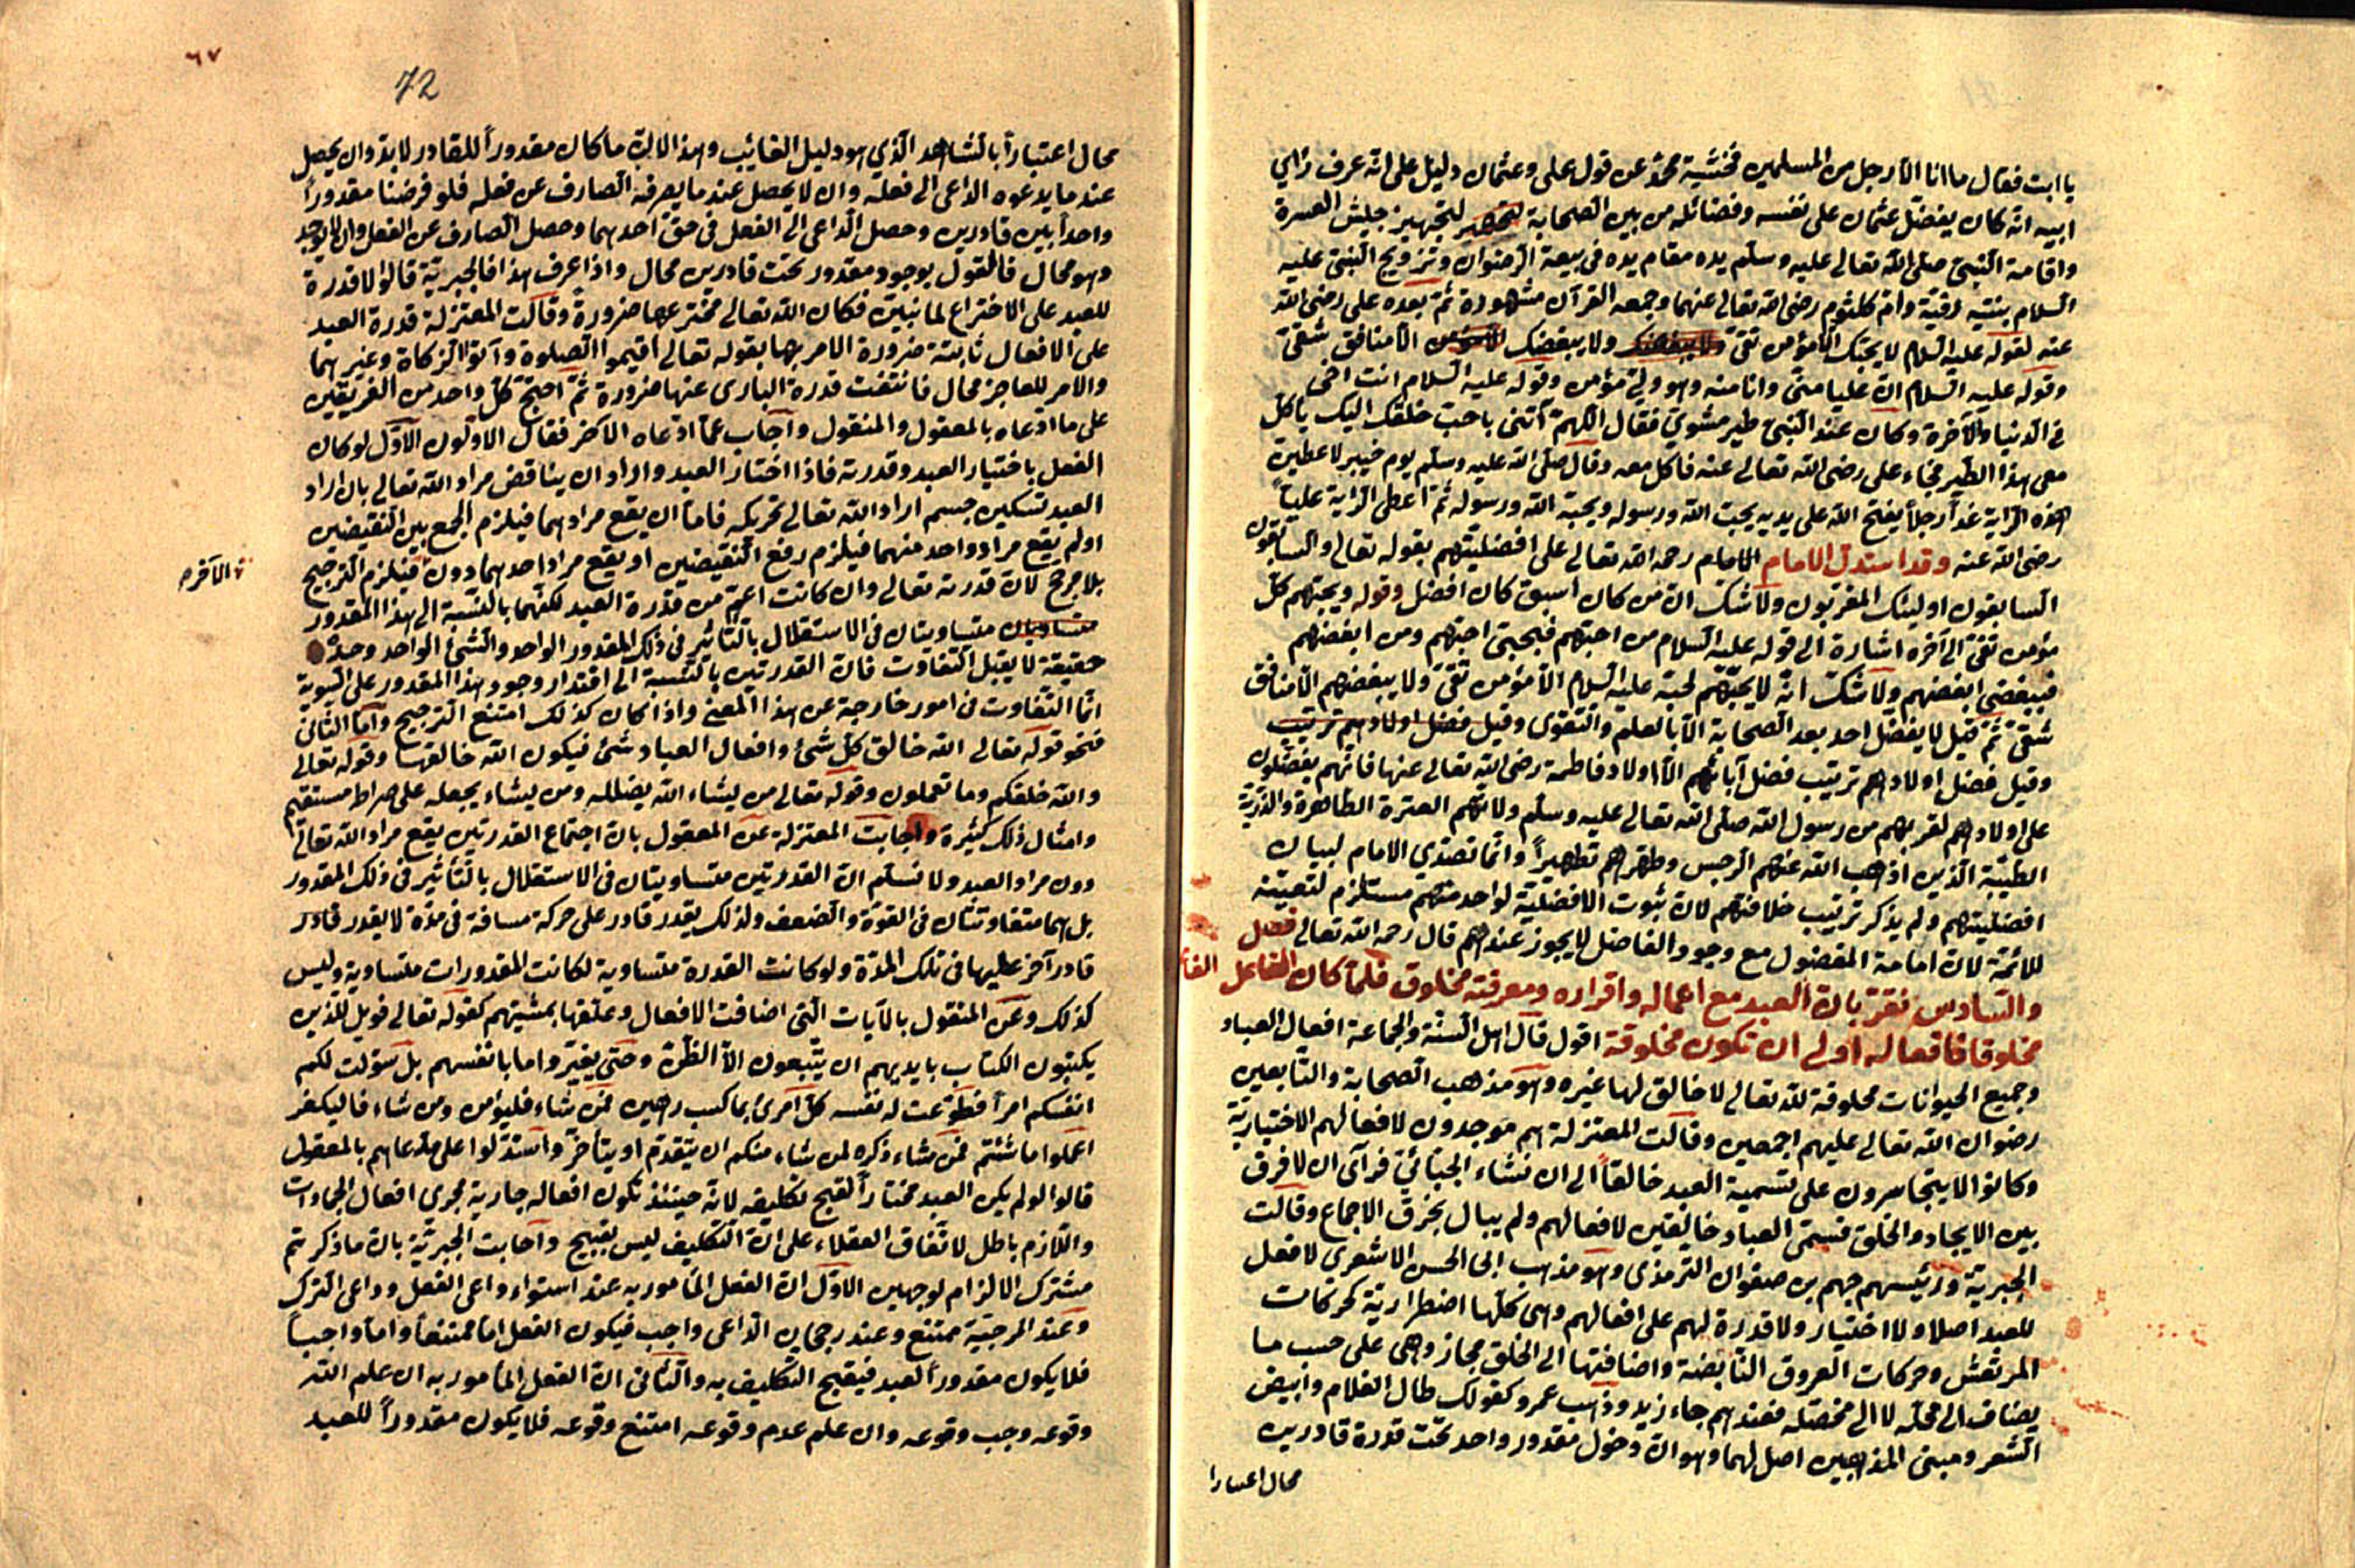 يا ابت فقال ما انا الا رجل من المسلمين فخشية محمد عن قول على وعثمان دليل على انه عرف رأي
ابيه انه كان يفضل عثمان على نفسه وفضائله من بين الصحابة لتجهيز جيش العسرة
واقامة النبى صلى الله تعالى عليه وسلم يده مقام يده فى بيعة الرضوان وتزويج النبى عليه
السلام بنتيه رقية وام كلثوم رضى الله تعالى عنهما وجمعه القرآن مشهورة ثم بعده على رضى الله
عنه لقوله عليه السلام لا يحبك الا مؤمن تقى ولا يبغضك الا منافق شقى
وقوله عليه السلام ان عليا منى وانا منه وهو ولى مؤمن وقوله عليه السلام انت اخى
فى الدنيا والآخرة وكان عند النبى طير مشوى فقال اللهم آتنى باحب خلقك اليك يأكل
معى هذا الطير فجاء على رضى الله تعالى عنه فاكل معه وقال صلى الله عليه وسلم يوم خيبر لاعطين
هذه الراية غدا رجلا يفتح الله على يديه يحب الله ورسوله ويحبه الله ورسوله ثم اعطى الراية عليا
رضى الله عنه وقد استدل الامام الامام رحمه الله تعالى على افضليتهم بقوله تعالى والسابقون
السابقون اولئك المقربون ولا شك ان من كان اسبق كان افضل وقوله ويحبهم كل
مؤمن تقى الى آخره اشارة الى قوله عليه السلام من احبهم فبحبى احبهم ومن ابغضهم
فببغضى ابغضهم ولا شك انه لا يحبهم لحبه عليه السلام الا مؤمن تقى ولا يبغضهم الا منافق
شقى ثم قيل لا يفضل احد بعد الصحابة الا بالعلم والتقوى وقيل فضل اولادهم ترتيب
وقيل فضل اولادهم ترتيب فضل آبائهم الا اولاد فاطمة رضى الله تعالى عنها فانهم يفضلون
على اولادهم لقربهم من رسول الله صلى الله تعالى عليه وسلم ولانهم العترة الطاهرة والذرية
الطيبة الذين اذهب الله عنهم الرجس وطهرهم تطهيرا وانما تصدى الامام لبيان
افضليتهم ولم يذكر ترتيب خلافتهم لان ثبوت الافضلية لواحد منهم مستلزم لتعينه
للائمة لان امامة المفضول مع وجود الفاضل لا يجوز عندهم قال رحمه الله تعالى فصل
والسادس نقر بان العبد مع اعماله واقراره ومعرفته مخلوق فلما كان الفاعل
مخلوقا فافعاله اولى ان تكون مخلوقة اقول قال اهل السنة والجماعة افعال العباد
وجميع الحيوانات مخلوقة لله تعالى لا خالق لها غيره وهو مذهب الصحابة والتابعين
رضوان الله تعالى عليهم اجمعين وقالت المعتزلة هم موجدون لافعالهم الاختيارية
وكانوا لا يتجاسرون على تسمية العبد خالقا الى ان نشاء الجبائى فرأى ان لا فرق
بين الايجاد والخلق فسمى العباد خالقين لافعالهم ولم يبال بخرق الاجماع وقالت
الجبرية ورئيسهم جهم بن صفوان الترمذى وهو مذهب ابى الحسن الاشعرى لا فعل
للعبد اصلا ولا اختيار ولا قدرة لهم على افعالهم وهى كلها اضطرارية كحركات
المرتعش وحركات العروق النابضة واضافتها الى الخلق مجاز وهى على حسب ما
يضاف الى محله لا الى محصله فعندهم جاء زيد وذهب عمرو كقولك طال الغلام وابيض
الشعر ومبنى المذهبين اصل لهما وهو ان دخول مقدور واحد تحت قدرة قادرين
محال اعتبارا
٦٧
72
محال اعتبارا بالشاهد الذي هو دليل الغائب وهذا لان ما كان مقدورا للقادر لا بد وان يحصل
عند ما يدعوه الداعى الى فعله وان لا يحصل عند ما يصرفه الصارف عن فعله فلو فرضنا مقدورا
واحدا بين قادرين وحصل الداعى الى الفعل فى حق احدهما وحصل الصارف عن الفعل
وهو محال فالقول بوجود مقدور تحت قادرين محال واذا عرف هذا فالجبرية قالوا لا قدرة
للعبد على الاختراع لما نبين فكان الله تعالى مخترعها ضرورة وقالت المعتزلة قدرة العبد
على الافعال ثابتة ضرورة الامر بها بقوله تعالى اقيموا الصلوة وآتوا الزكاة وغيرهما
والامر للعاجز محال فانتفت قدرة البارى عنها ضرورة ثم احتج كل واحد من الفريقين
على ما ادعاه بالمعقول والمنقول واجاب عما ادعاه الآخر فقال الاولون الاول لو كان
الفعل باختيار العبد وقدرته فاذا اختار العبد واراد ان يناقض مراد الله تعالى بان اراد
العبد تسكين جسم اراد الله تعالى تحريكه فاما ان يقع مرادهما فيلزم الجمع بين النقيضين
او لم يقع مراد واحد منهما فيلزم رفع النقيضين او يقع مراد احدهما دون فيلزم الترجيح
الآخر
بلا مرجح لان قدرته تعالى وان كانت اعم من قدرة العبد لكنهما بالنسبة الى هذا المقدور
متساويتان فى الاستقلال بالتأثير فى ذلك المقدور الواحد والشئ الواحد وحدة
حقيقة لا يقبل التفاوت فان القدرتين بالنسبة الى اقتدار وجود هذا المقدور على السوية
انما التفاوت فى امور خارجة عن هذا المعنى واذا كان كذلك امتنع الترجيح واما الثانى
فنحو قوله تعالى الله خالق كل شئ وافعال العباد شئ فيكون الله خالقها وقوله تعالى
والله خلقكم وما تعملون وقوله تعالى من يشاء الله يضلله ومن يشاء يجعله على صراط مستقيم
وامثال ذلك كثيرة واجابت المعتزلة عن المعقول بان اجتماع القدرتين يقع مراد الله تعالى
دون مراد العبد ولا نسلم ان القدرتين متساويتان فى الاستقلال بالتأثير فى ذلك المقدور
بل هما متفاوتتان فى القوة والضعف ولذلك يقدر قادر على حركة مسافة فى مدة لا يقدر قادر
قادر آخر عليها فى تلك المدة ولو كانت القدرة متساوية لكانت المقدورات متساوية وليس
كذلك وعن المنقول بالآيات التى اضافت الافعال وعلقها بمشيتهم كقوله تعالى فويل للذين
يكتبون الكتاب بايديهم ان يتبعون الا الظن وحتى يغيروا ما بانفسهم بل سولت لكم
انفسكم امرا فطوعت له نفسه كل امرئ بما كسب رهين فمن شاء فليؤمن ومن شاء فاليكفر
اعملوا ما شئتم فمن شاء ذكره لمن شاء منكم ان يتقدم او يتأخر واستدلوا على مدعاهم بالمعقول
قالوا لو لم يكن العبد مختارا لقبح تكليفه لانه حينئذ تكون افعاله جارية مجرى افعال الجمادات
واللازم باطل لاتفاق العقلاء على ان التكليف ليس بقبيح واجابت الجبرية بان ما ذكرتم
مشترك الالزام لوجهين الاول ان الفعل المأمور به عند استواء داعى الفعل وداعى الترك
وعند المرجية ممتنع وعند رجحان الداعى واجب فيكون الفعل اما ممتنعا واما واجبا
فلا يكون مقدورا لعبد فيقبح التكليف به والثانى ان الفعل المأمور به ان علم الله
وقوعه وجب وقوعه وان علم عدم وقوعه امتنع وقوعه فلا يكون مقدورا للعبد